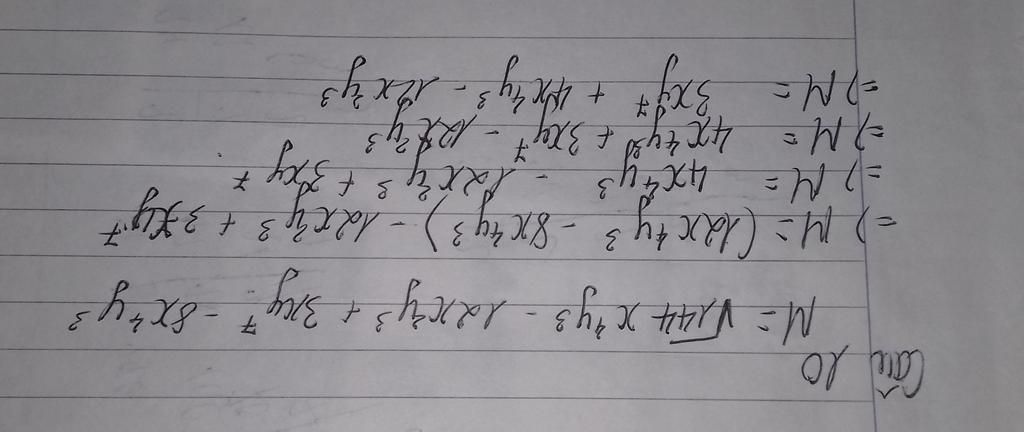 Câu 10
M = √144 x⁴y³ - 12x²y³ + 3xy⁷ - 8x⁴y³
=) M = (12x⁴y³ - 8x⁴y³) - 12x²y³ + 3xy⁷
=) M = 4x⁴y³ - 12x²y³ + 3xy⁷
=) M = 4x⁴y³ + 3xy⁷ - 12x²y³
=) M = 3xy⁷ + 4x⁴y³ - 12x²y³